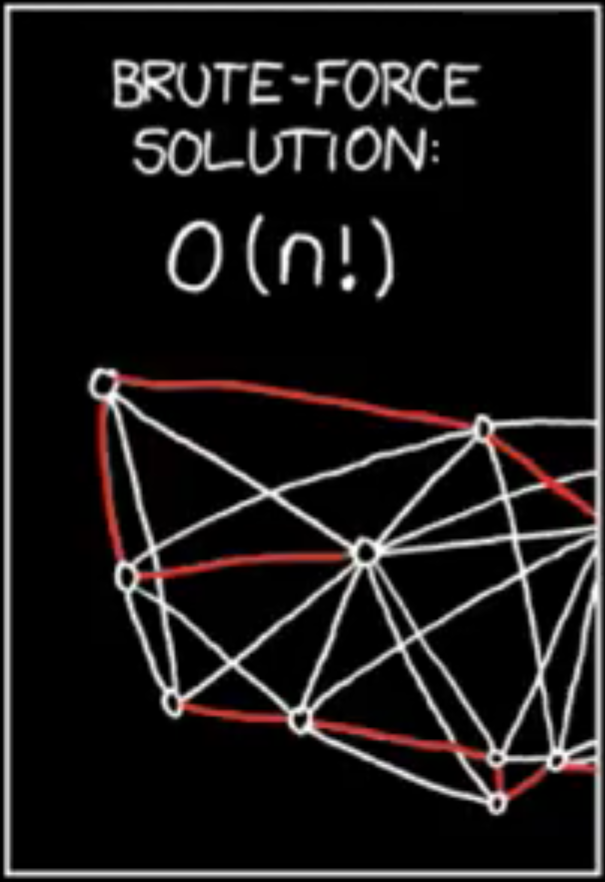 BRUTE-FORCE
SOLUTION:
O(n!)